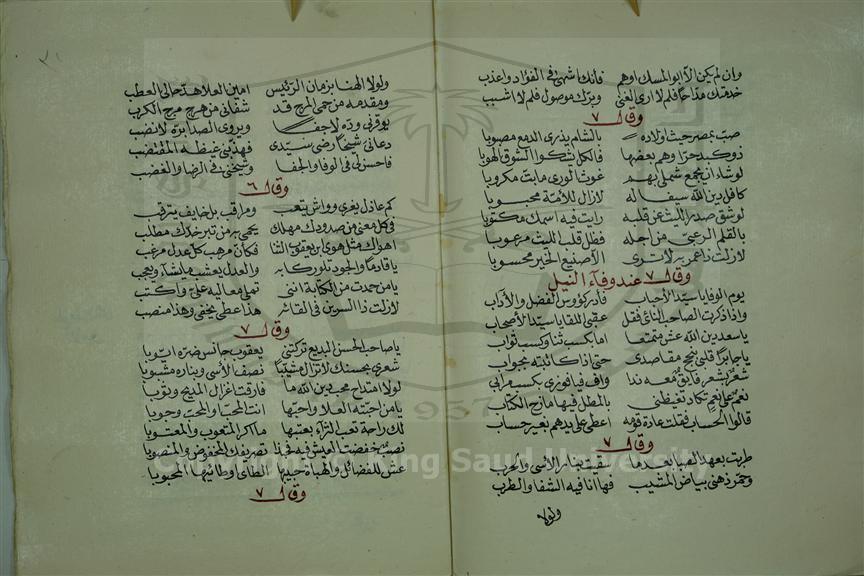 وان لم يكن الا ابو المسك اوهم فانك اشهى في الفؤاد واعذب
خدمتك مداحا فلم لا ارى الغنى وبرك موصول فلم لا اشبب
وقال ٧
صب بمصر حيث اولاده بالشام يذري الدمع مصبوبا
ذو كبد حرا وهم بعضها فالكل يشكوا الشوق الهوبا
لو شاء ان يجمع شملي بهم غوث الورى ما بت مكروبا
كافل دين الله سيفا له لازال للامة محبوبا
لو شق صدر الليث عن قلبه رايت فيه اسمك مكتوبا
بالقلم الرعبي من اجله فظل قلب الليث مرعوبا
لازلت ذا عمر به لا ترى الا صنيع الخير محسوبا
وقال ٧ عند وفاء النيل
يوم الوفا يا سيد الاحباب فادر كؤوس الفضل والآداب
واذا ذكرت الصاحب النائ فقل عقبى للقا يا سيد الاصحاب
يا سعد دين الله عش متمتعا اما بكسب ثنا وكسب ثواب
يا جابرا قلبي بنجح مقاصدي حتى اذا كاتبته بجواب
شعر بشعر فايق معه ندا واف فيا فوزي بكسب مرابي
نعم على نعم تكاد تغيظني بالمطل فيها مازح الكتاب
قالوا الحساب فقلت عادة قومه اعطى على يدهم بغير حساب
وقال ٧
طربت بعهد الصبا بعد ما سقيت بنار الاسى والحرب
وحمر ذهني بياض المشيب فها انا فيه الشفا والطرب
ولولا
ولولا الهنا بزمان الرئيس امين العلا هد حالي العطب
ومقدمه من حمى المرج قد شفاني من هرج مرج الكرب
يوقرني وده لاجفا ويروى الصدا بره لا نضب
دعاني شيخا رضى سيدى فهذبني غيظه المقتضب
فاحسن لي في الوفا والجفا وشيخني في الرضا والغضب
وقال ٦
كم عاذل يغرى وواش يتعب ومراقب بل خايف يترقب
في كل معنى من صدودك مهلك يحمى به من تبر خدك مطلب
اهواك مثل هوى ابن يعقوب الثنا فكان مرهب كل عدل مرغب
يا قادما والجود تلو ركابه والعدل يعشب ما يشاء ويجب
يا من حمدت من الكتابة انني تملى معاليه علي واكتب
لازلت ذا السرين في القا شر هذا عطى يخفى وهذا منصب
وقال ٧
يا صاحب الحسن البديع تركتني يعقوب جانس ضره ايوبا
شعري بحسنك لا تزال مشببا نصف الاسى وبناره مشبوبا
لولا امتداح محب دين الله ما فارقت اغزال المديح وثوبا
يا من احبته العلا واحبها انت المحب والمحب وجوبا
لك راحة تعب الثراء بعشها ما اكر المتعوب والمعتوبا
نصب خفضت العيش فيه فحبذا تصريفك المخفوض والمنصوبا
عش للفضائل والهباة حبيبها الطائى او طائيها المحبوبا
وقال ٧